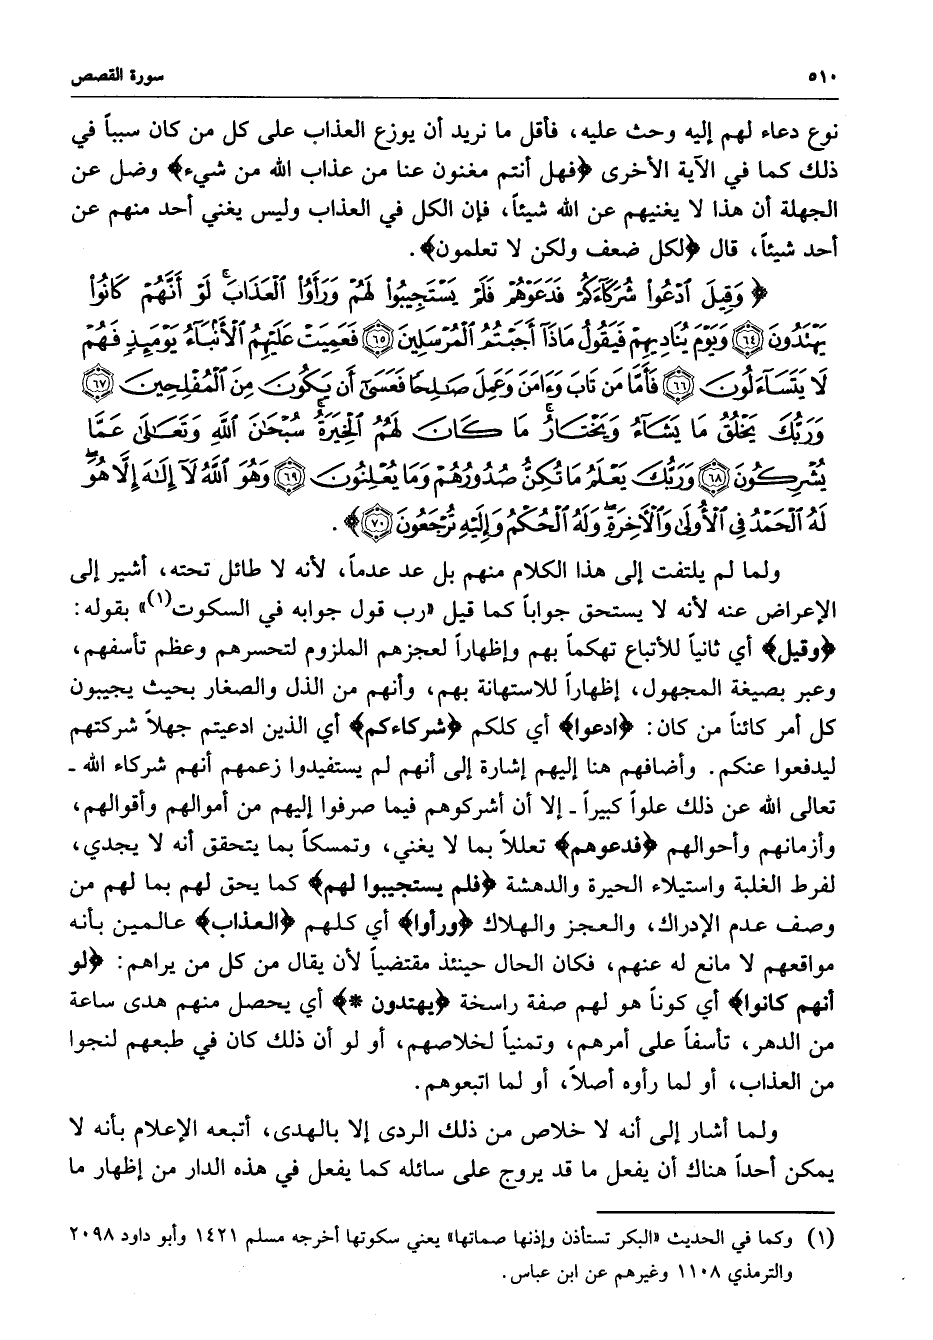 ٥١٠ سورة القصص
نوع دعاء لهم إليه وحث عليه، فأقل ما نريد أن يوزع العذاب على كل من كان سبباً في
ذلك كما في الآية الأخرى ﴿فهل أنتم مغنون عنا من عذاب الله من شيء﴾ وضل عن
الجهلة أن هذا لا يغنيهم عن الله شيئاً، فإن الكل في العذاب وليس يغني أحد منهم عن
أحد شيئاً، قال ﴿لكل ضعف ولكن لا تعلمون﴾.
﴿ وَقِيلَ ٱدْعُوا۟ شُرَكَآءَكُمْ فَدَعَوْهُمْ فَلَمْ يَسْتَجِيبُوا۟ لَهُمْ وَرَأَوُا۟ ٱلْعَذَابَ ۚ لَوْ أَنَّهُمْ كَانُوا۟
يَهْتَدُونَ ﴿٦٤﴾ وَيَوْمَ يُنَادِيهِمْ فَيَقُولُ مَاذَآ أَجَبْتُمُ ٱلْمُرْسَلِينَ ﴿٦٥﴾ فَعَمِيَتْ عَلَيْهِمُ ٱلْأَنۢبَآءُ يَوْمَئِذٍ فَهُمْ
لَا يَتَسَآءَلُونَ ﴿٦٦﴾ فَأَمَّا مَن تَابَ وَءَامَنَ وَعَمِلَ صَـٰلِحًا فَعَسَىٰٓ أَن يَكُونَ مِنَ ٱلْمُفْلِحِينَ ﴿٦٧﴾
وَرَبُّكَ يَخْلُقُ مَا يَشَآءُ وَيَخْتَارُ ۗ مَا كَانَ لَهُمُ ٱلْخِيَرَةُ ۚ سُبْحَـٰنَ ٱللَّهِ وَتَعَـٰلَىٰ عَمَّا
يُشْرِكُونَ ﴿٦٨﴾ وَرَبُّكَ يَعْلَمُ مَا تُكِنُّ صُدُورُهُمْ وَمَا يُعْلِنُونَ ﴿٦٩﴾ وَهُوَ ٱللَّهُ لَآ إِلَـٰهَ إِلَّا هُوَ ۖ
لَهُ ٱلْحَمْدُ فِى ٱلْأُولَىٰ وَٱلْـَٔاخِرَةِ ۖ وَلَهُ ٱلْحُكْمُ وَإِلَيْهِ تُرْجَعُونَ ﴿٧٠﴾ ﴾.
ولما لم يلتفت إلى هذا الكلام منهم بل عد عدماً، لأنه لا طائل تحته، أشير إلى
الإعراض عنه لأنه لا يستحق جواباً كما قيل «رب قول جوابه في السكوت(١)» بقوله:
﴿وقيل﴾ أي ثانياً للأتباع تهكماً بهم وإظهاراً لعجزهم الملزوم لتحسرهم وعظم تأسفهم،
وعبر بصيغة المجهول، إظهاراً للاستهانة بهم، وأنهم من الذل والصغار بحيث يجيبون
كل أمر كائناً من كان: ﴿ادعوا﴾ أي كلكم ﴿شركاءكم﴾ أي الذين ادعيتم جهلاً شركتهم
ليدفعوا عنكم. وأضافهم هنا إليهم إشارة إلى أنهم لم يستفيدوا زعمهم أنهم شركاء الله ـ
تعالى الله عن ذلك علواً كبيراً ـ إلا أن أشركوهم فيما صرفوا إليهم من أموالهم وأقوالهم،
وأزمانهم وأحوالهم ﴿فدعوهم﴾ تعللاً بما لا يغني، وتمسكاً بما يتحقق أنه لا يجدي،
لفرط الغلبة واستيلاء الحيرة والدهشة ﴿فلم يستجيبوا لهم﴾ كما يحق لهم بما لهم من
وصف عدم الإدراك، والعجز والهلاك ﴿ورأوا﴾ أي كلهم ﴿العذاب﴾ عالمين بأنه
مواقعهم لا مانع له عنهم، فكان الحال حينئذ مقتضياً لأن يقال من كل من يراهم: ﴿لو
أنهم كانوا﴾ أي كوناً هو لهم صفة راسخة ﴿يهتدون *﴾ أي يحصل منهم هدى ساعة
من الدهر، تأسفاً على أمرهم، وتمنياً لخلاصهم، أو لو أن ذلك كان في طبعهم لنجوا
من العذاب، أو لما رأوه أصلاً، أو لما اتبعوهم.
ولما أشار إلى أنه لا خلاص من ذلك الردى إلا بالهدى، أتبعه الإعلام بأنه لا
يمكن أحداً هناك أن يفعل ما قد يروج على سائله كما يفعل في هذه الدار من إظهار ما
(١) وكما في الحديث «البكر تستأذن وإذنها صماتها» يعني سكوتها أخرجه مسلم ١٤٢١ وأبو داود ٢٠٩٨
والترمذي ١١٠٨ وغيرهم عن ابن عباس.